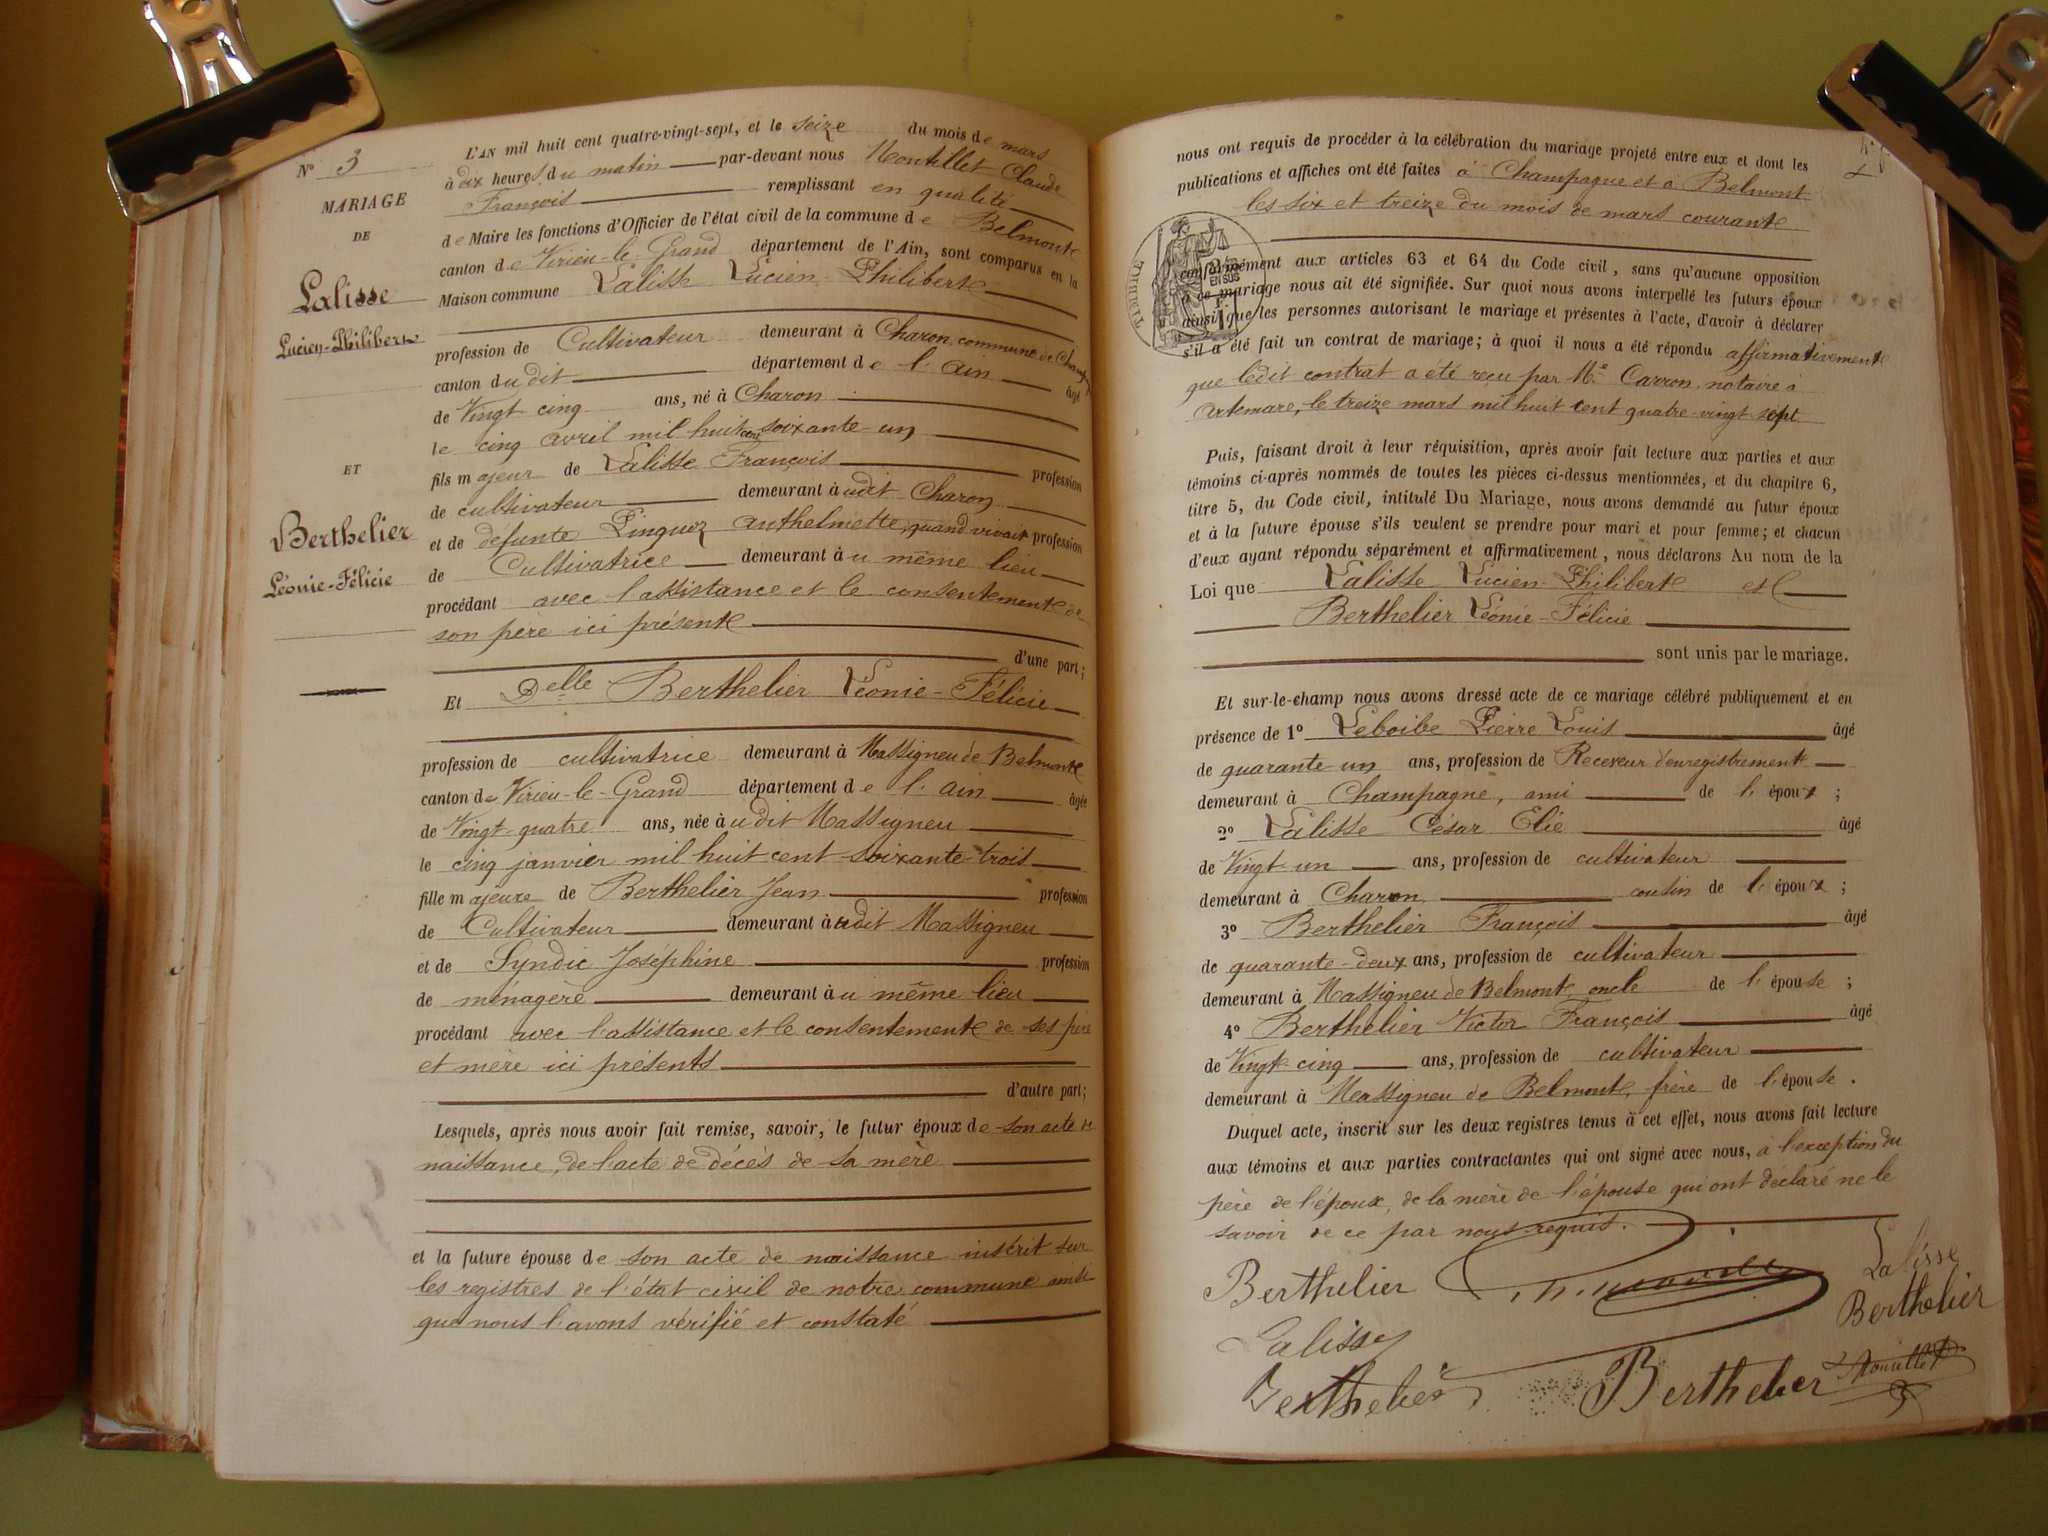 N° 3
MARIAGE
DE
Lalisse
Lucien-Philibert
ET
Berthelier
Léonie-Félicie
L'AN mil huit cent quatre-vingt-sept, et le seize du mois de mars
à dix heures du matin par-devant nous Montillet Claude
François remplissant en qualité
de Maire les fonctions d'Officier de l'état civil de la commune de Belmont
canton de Virieu-le-Grand département de l'Ain, sont comparus en la
Maison commune Lalisse Lucien-Philibert
profession de Cultivateur demeurant à Charon, commune de
canton dudit département de l'Ain âgé
de Vingt cinq ans, né à Charon
le cinq avril mil huit cent soixante-un
fils majeur de Lalisse François profession
de cultivateur demeurant audit Charon
et de défunte Pinguez Anthelmette, quand vivait profession
de Cultivatrice demeurant au même lieu
procédant avec l'assistance et le consentement de
son père ici présent
d'une part;
Et Delle Berthelier Léonie-Félicie
profession de cultivatrice demeurant à Massigneu de Belmont
canton de Virieu-le-Grand département de l'Ain âgée
de Vingt-quatre ans, née audit Massigneu
le cinq janvier mil huit cent soixante-trois
fille majeure de Berthelier Jean profession
de Cultivateur demeurant audit Massigneu
et de Syndic Joséphine profession
de ménagère demeurant au même lieu
procédant avec l'assistance et le consentement de ses père
et mère ici présents
d'autre part;
Lesquels, après nous avoir fait remise, savoir, le futur époux de son acte de
naissance, de l'acte de décès de sa mère
et la future épouse de son acte de naissance inscrit sur
les registres de l'état civil de notre commune ainsi
que nous l'avons vérifié et constaté
nous ont requis de procéder à la célébration du mariage projeté entre eux et dont les
publications et affiches ont été faites à Champagne et à Belmont
les six et treize du mois de mars courant
TIMBRE
EN SUS
conformément aux articles 63 et 64 du Code civil, sans qu'aucune opposition
à ce mariage nous ait été signifiée. Sur quoi nous avons interpellé les futurs époux
ainsi que les personnes autorisant le mariage et présentes à l'acte, d'avoir à déclarer
s'il a été fait un contrat de mariage; à quoi il nous a été répondu affirmativement
que ledit contrat a été reçu par Me Carron, notaire à
Artemare, le treize mars mil huit cent quatre-vingt sept
Puis, faisant droit à leur réquisition, après avoir fait lecture aux parties et aux
témoins ci-après nommés de toutes les pièces ci-dessus mentionnées, et du chapitre 6,
titre 5, du Code civil, intitulé Du Mariage, nous avons demandé au futur époux
et à la future épouse s'ils veulent se prendre pour mari et pour femme; et chacun
d'eux ayant répondu séparément et affirmativement, nous déclarons Au nom de la
Loi que Lalisse Lucien-Philibert et
Berthelier Léonie-Félicie
sont unis par le mariage.
Et sur-le-champ nous avons dressé acte de ce mariage célébré publiquement et en
présence de 1° Leboibe Pierre Louis âgé
de quarante-un ans, profession de Receveur d'enregistrement
demeurant à Champagne, ami de l'époux;
2° Lalisse César Elie âgé
de Vingt-un ans, profession de cultivateur
demeurant à Charon cousin de l'époux;
3° Berthelier François âgé
de quarante-deux ans, profession de cultivateur
demeurant à Massigneu de Belmont, oncle de l'épouse;
4° Berthelier Victor François âgé
de Vingt-cinq ans, profession de cultivateur
demeurant à Massigneu de Belmont, frère de l'épouse.
Duquel acte, inscrit sur les deux registres tenus à cet effet, nous avons fait lecture
aux témoins et aux parties contractantes qui ont signé avec nous, à l'exception du
père de l'époux, de la mère de l'épouse qui ont déclaré ne le
savoir de ce par nous requis.
Berthelier
Lalisse
Berthelier
Lalisse
Berthelier
Berthelier
Montillet